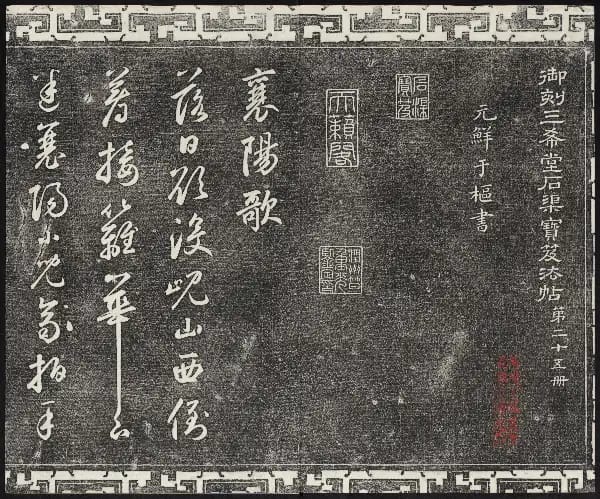 御刻三希堂石渠寶笈法帖 第二十五册
元鮮于樞書
石渠寶笈
天籟閣
襄陽歌
落日欲没峴山西倒
著接籬華下
迷襄陽小兒齊拍手